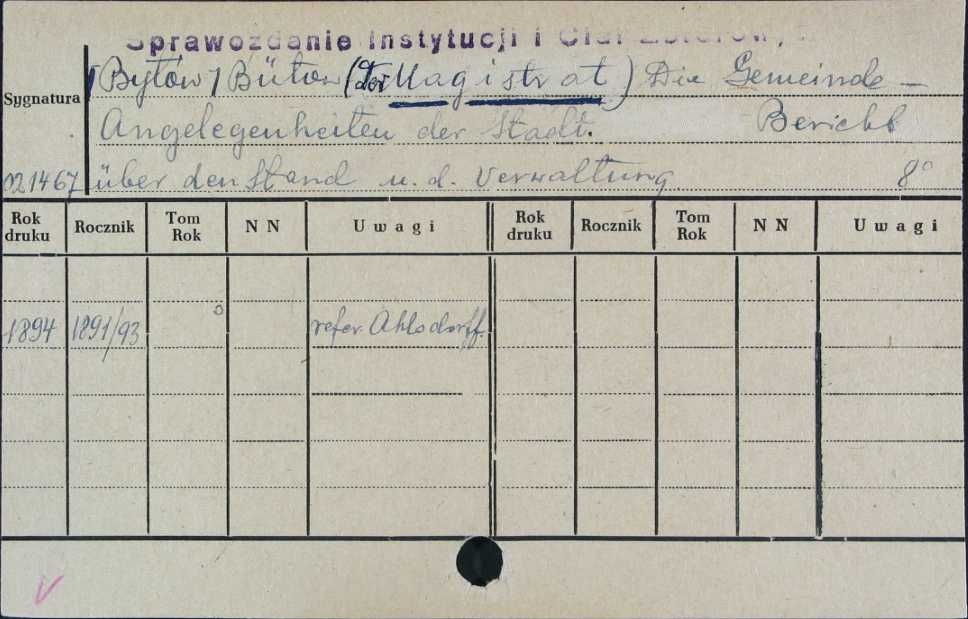 Sprawozdanie Instytucji i Ciał
/Bytów/ Bütow (Der Magistrat) Die Gemeinde-
Sygnatura
Angelegenheiten der Stadt. Bericht
021467 über den Stand u. d. Verwaltung 8°
Rok druku Rocznik Tom Rok N N Uwagi Rok druku Rocznik Tom Rok N N Uwagi
1894 1891/93 refer. Ahlsdorff.